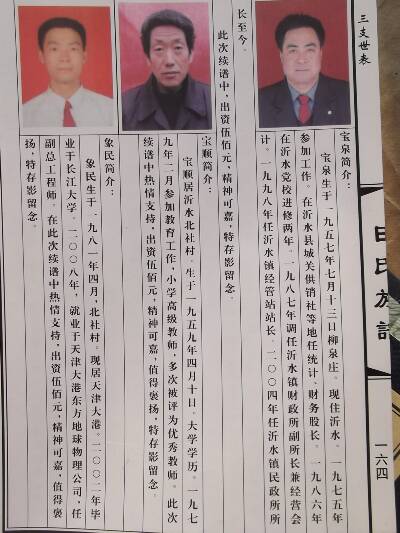 三支世表
田氏族谱
一六四
宝泉简介：
宝泉生于一九五七年七月十三日柳泉庄。现住沂水。一九七五年
参加工作。在沂水县城关供销社等地任统计、财务股长。一九八六年
在沂水党校进修两年。一九八七年调任沂水镇财政所副所长兼经营会
计。一九九八年任沂水镇经管站站长。二〇〇四年任沂水镇民政所所
长至今。
此次续谱中，出资伍佰元，精神可嘉，特存影留念。
宝顺简介：
宝顺居沂水北社村。生于一九五九年四月十日。大学学历。一九七
九年二月参加教育工作，小学高级教师，多次被评为优秀教师。此次
续谱中热情支持，出资伍佰元，精神可嘉，值得褒扬，特存影留念。
象民简介：
象民生于一九八一年四月，北社村。现居天津大港。二〇〇二年毕
业于长江大学。二〇〇八年，就业于天津大港东方地球物理公司，任
副总工程师。在此次续谱中热情支持，出资伍佰元，精神可嘉，值得褒
扬，特存影留念。